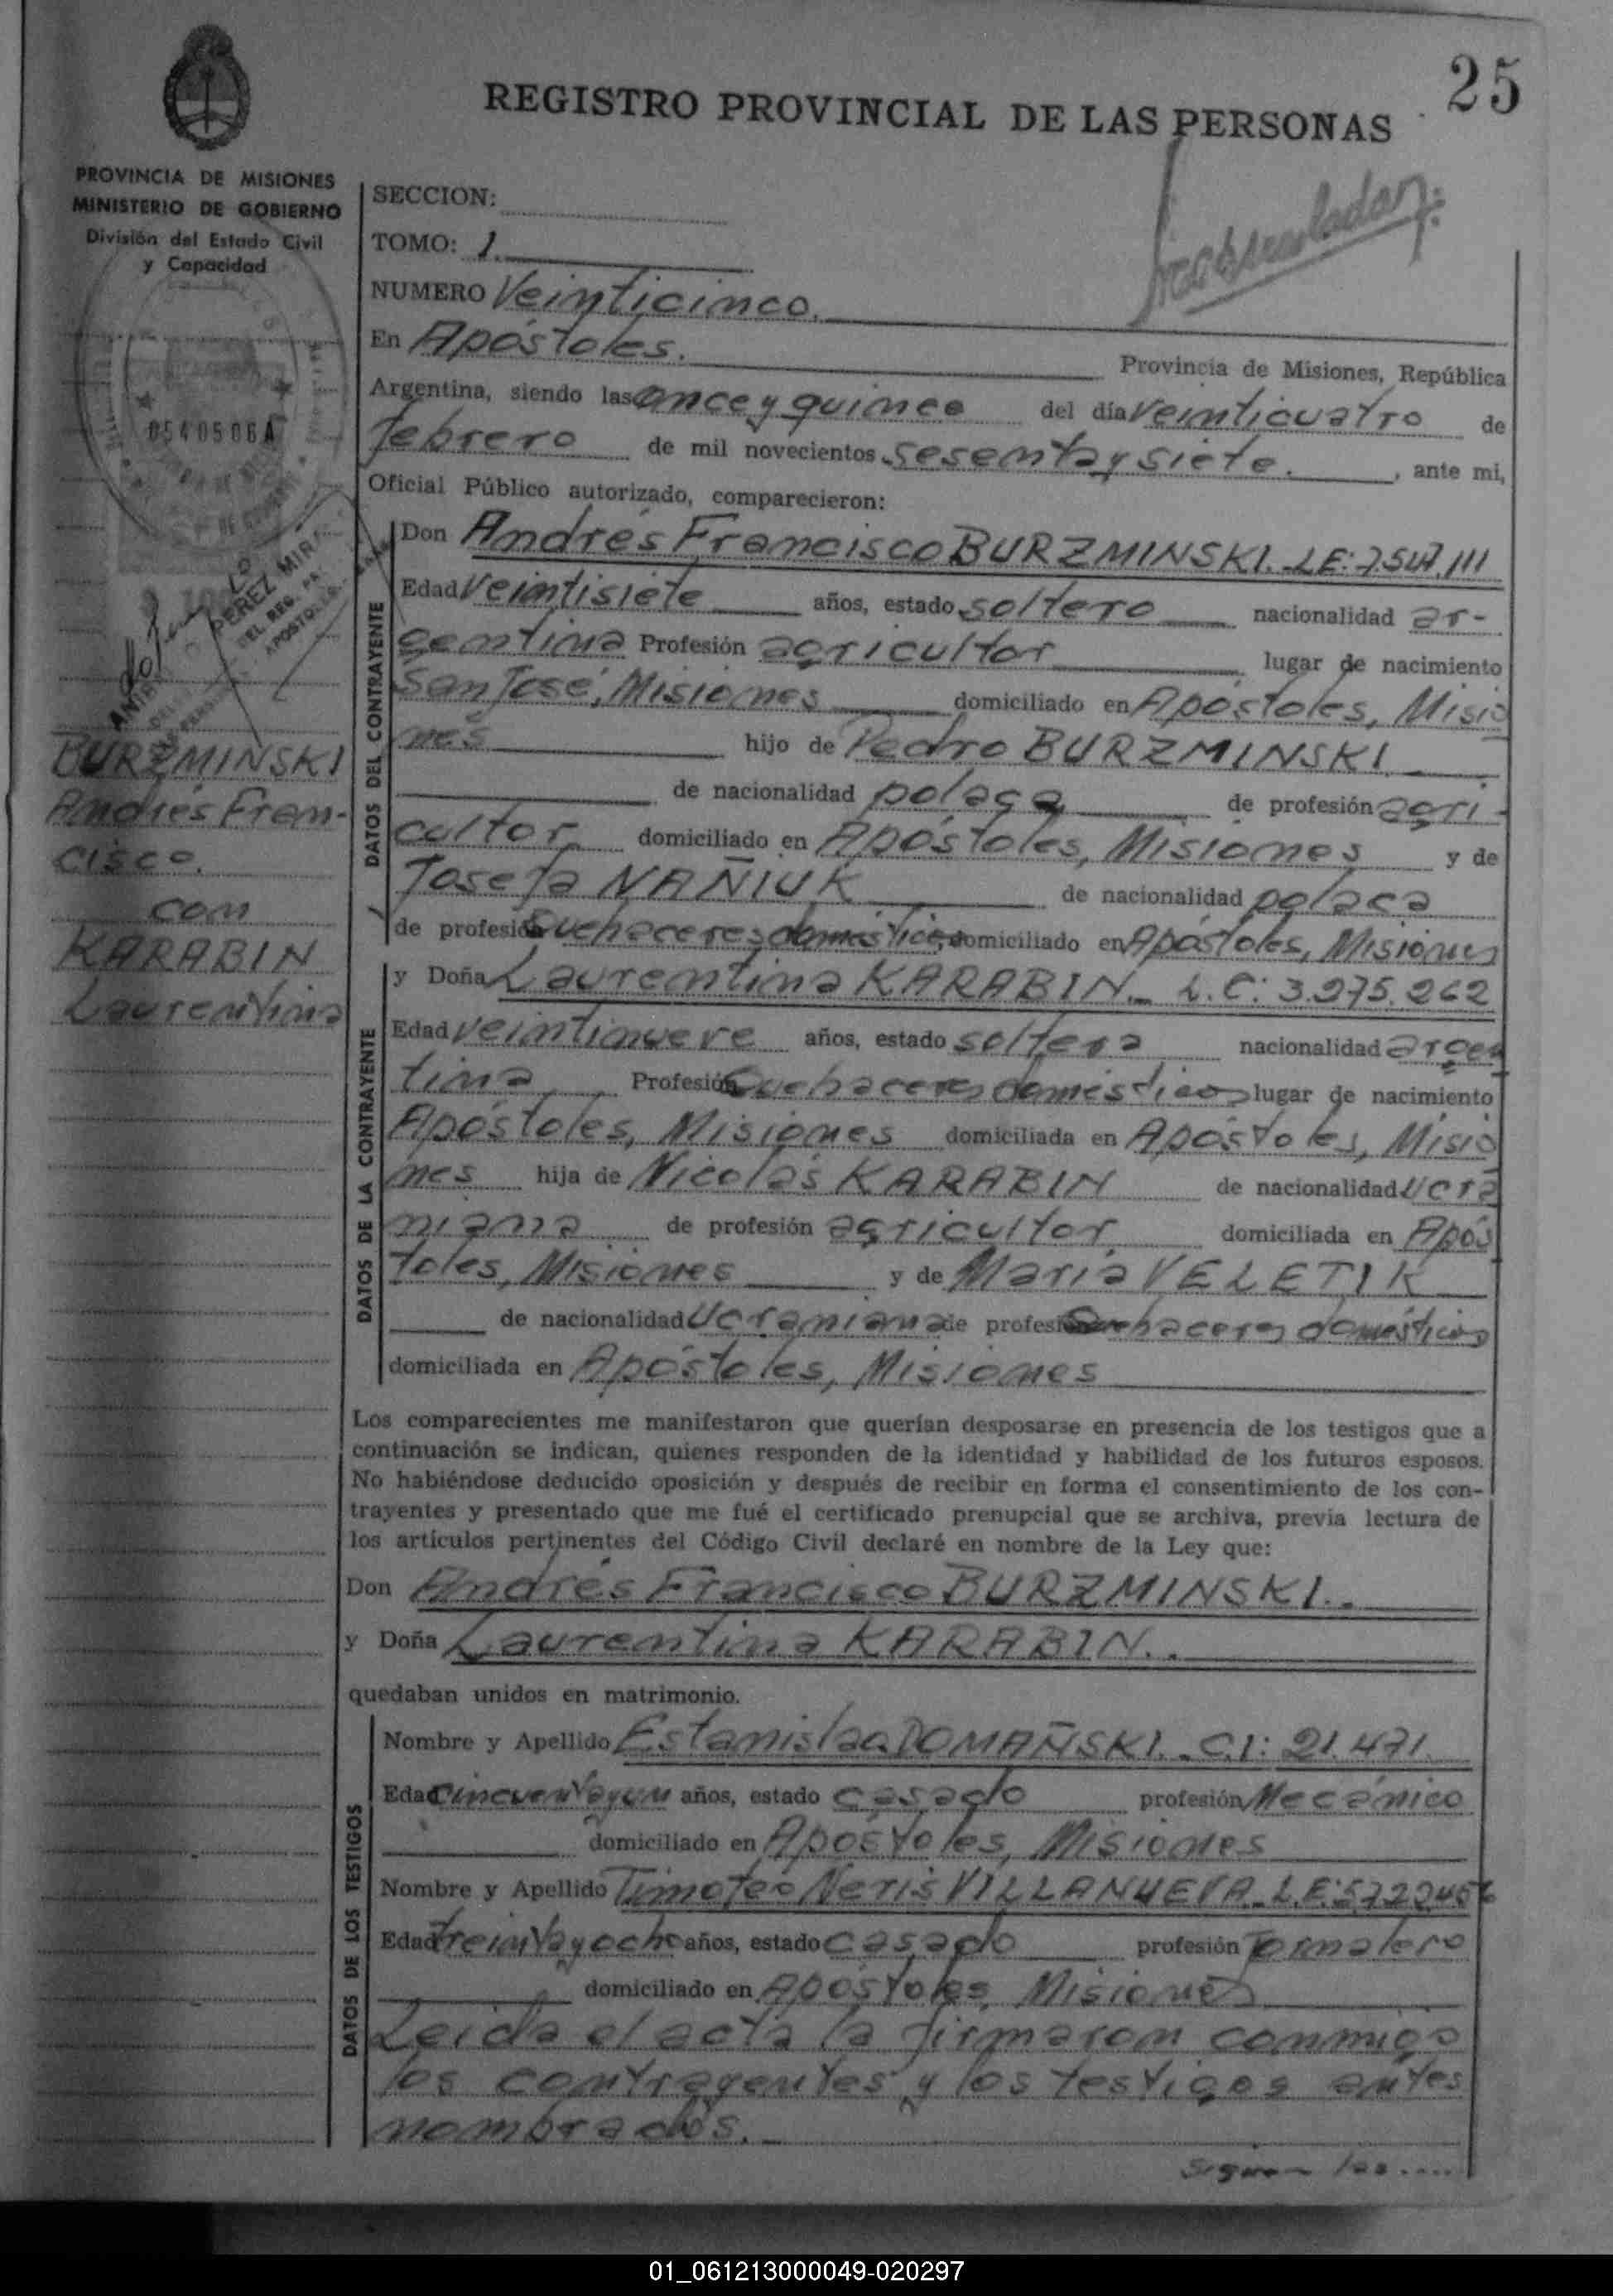 25
REGISTRO PROVINCIAL DE LAS PERSONAS
PROVINCIA DE MISIONES
MINISTERIO DE GOBIERNO
División del Estado Civil
y Capacidad
0540506A
PEREZ MIRA
DEL REG.
BURZMINSKI
Andrés Fran-
cisco.
con
KARABIN
Laurentina
SECCION:
TOMO: 1.
NUMERO Veinticinco.
En Apóstoles. Provincia de Misiones, República
Argentina, siendo las once y quince del día veinticuatro de
febrero de mil novecientos sesenta y siete. , ante mi,
Oficial Público autorizado, comparecieron:
DATOS DEL CONTRAYENTE
Don Andrés Francisco BURZMINSKI. LE: 7.547.111
Edad veintisiete años, estado soltero nacionalidad ar-
gentina Profesión agricultor lugar de nacimiento
San José, Misiones domiciliado en Apóstoles, Misio
nes hijo de Pedro BURZMINSKI
de nacionalidad polaca de profesión agri-
cultor domiciliado en Apóstoles, Misiones y de
Josefa NAÑIUK de nacionalidad polaca
de profesión quehaceres domésticos, domiciliado en Apóstoles, Misiones
DATOS DE LA CONTRAYENTE
y Doña Laurentina KARABIN. L.C: 3.275.262
Edad veintinueve años, estado soltera nacionalidad argen
tina Profesión Quehaceres domésticos lugar de nacimiento
Apóstoles, Misiones domiciliada en Apóstoles, Misio
nes hija de Nicolás KARABIN de nacionalidad ucra
niana de profesión agricultor domiciliada en Após
toles, Misiones y de María VELETIK
de nacionalidad Ucraniana de profesión Quehaceres domésticos
domiciliada en Apóstoles, Misiones
Los comparecientes me manifestaron que querían desposarse en presencia de los testigos que a
continuación se indican, quienes responden de la identidad y habilidad de los futuros esposos.
No habiéndose deducido oposición y después de recibir en forma el consentimiento de los con-
trayentes y presentado que me fué el certificado prenupcial que se archiva, previa lectura de
los artículos pertinentes del Código Civil declaré en nombre de la Ley que:
Don Andrés Francisco BURZMINSKI..
y Doña Laurentina KARABIN..
quedaban unidos en matrimonio.
DATOS DE LOS TESTIGOS
Nombre y Apellido Estanislao DOMAÑSKI. C.I: 21.471.
Edad cincuentayun años, estado casado profesión Mecánico
domiciliado en Apóstoles, Misiones
Nombre y Apellido Timoteo Neris VILLANUEVA. L.E:
Edad treintayocho años, estado casado profesión Jornalero
domiciliado en Apóstoles, Misiones
Leida el acta la firmaron conmigo
los contrayentes y los testigos antes
nombrados.
Siguen las ....
01_061213000049-020297